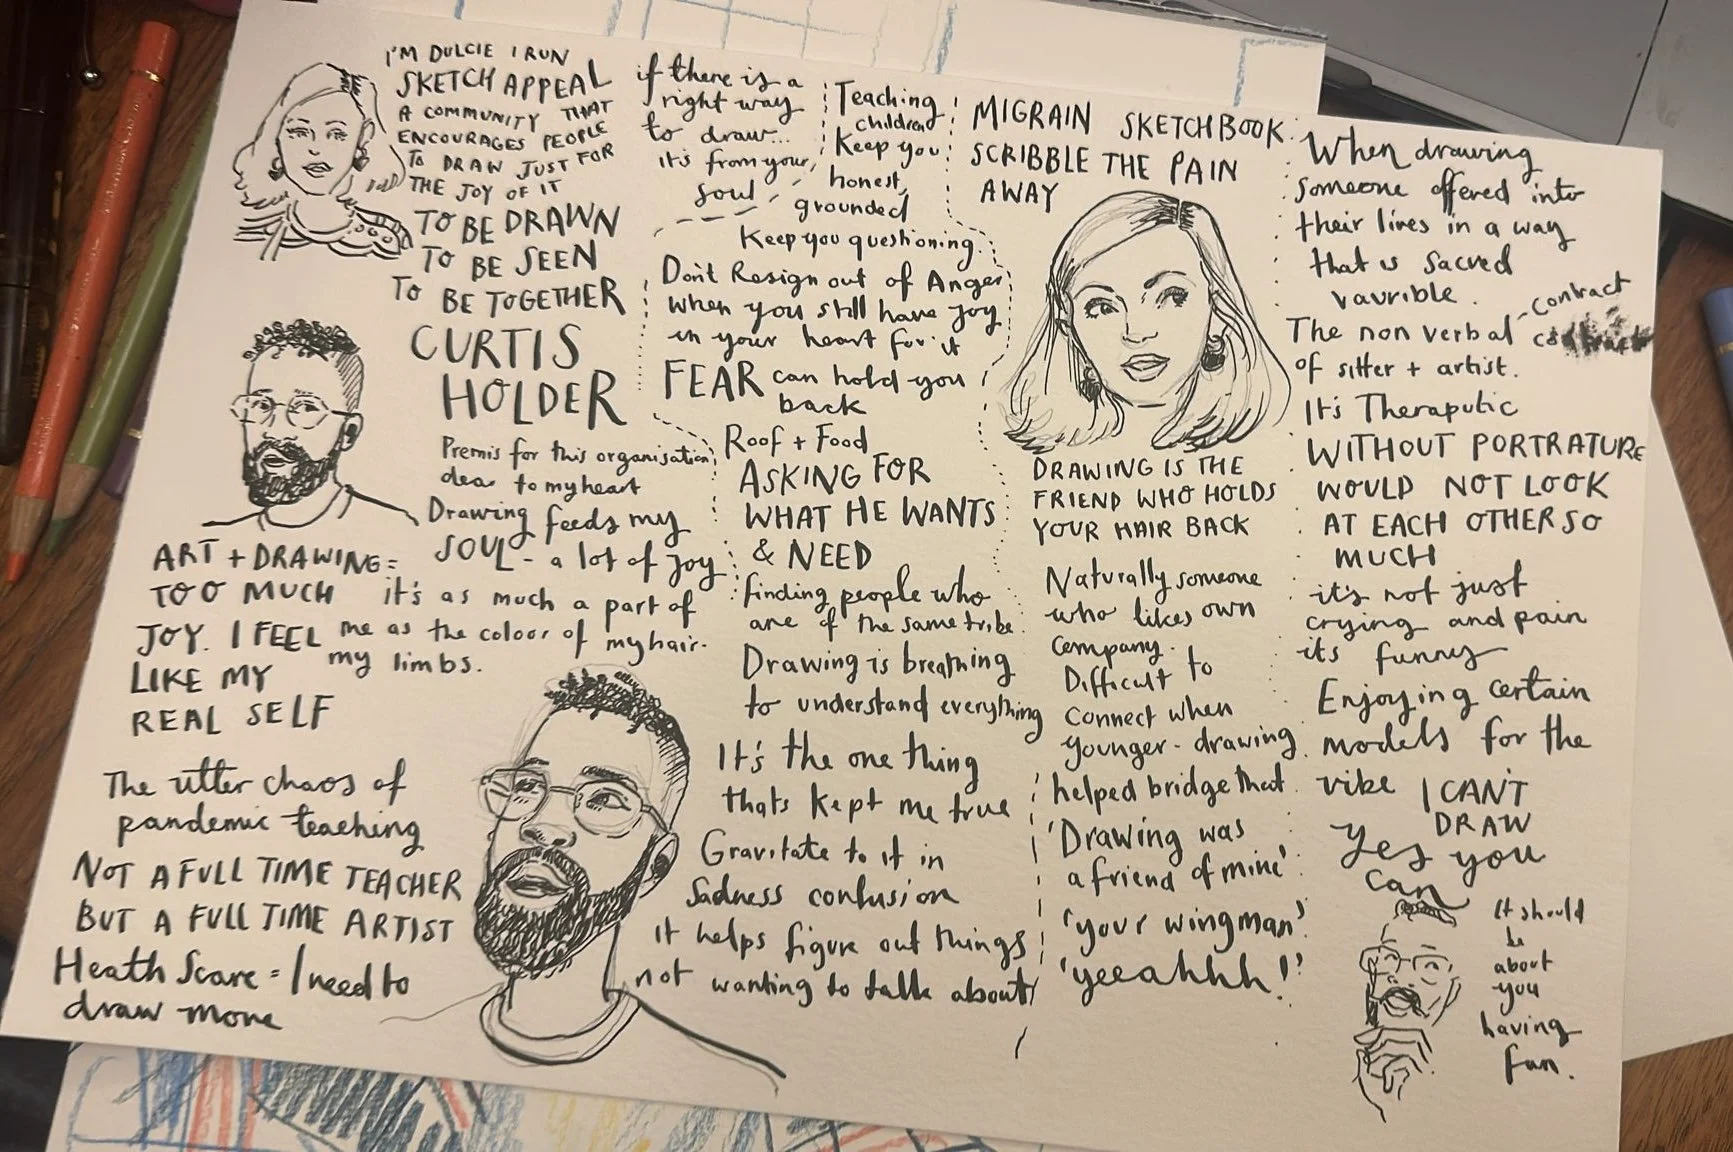 I'M DULCIE I RUN
SKETCH APPEAL
A COMMUNITY THAT
ENCOURAGES PEOPLE
TO DRAW JUST FOR
THE JOY OF IT
TO BE DRAWN
TO BE SEEN
TO BE TOGETHER
CURTIS
HOLDER
Premis for this organisation
dear to my heart
Drawing feeds my
SOUL - a lot of joy
it's as much a part of
me as the colour of my hair.
my limbs.
ART + DRAWING =
TOO MUCH
JOY. I FEEL
LIKE MY
REAL SELF
The utter chaos of
pandemic teaching
NOT A FULL TIME TEACHER
BUT A FULL TIME ARTIST
Heath Scare = I need to
draw more
if there is a
right way
to draw...
it's from your
soul
Teaching
children
Keep you
honest,
grounded
Keep you questioning
Don't Resign out of Anger
when you still have joy
in your heart for it
FEAR can hold you
back
Roof + Food
ASKING FOR
WHAT HE WANTS
& NEED
finding people who
are of the same tribe.
Drawing is breathing
to understand everything
It's the one thing
thats kept me true
Gravitate to it in
Sadness confusion
it helps figure out things
not wanting to talk about
MIGRAIN SKETCHBOOK
SCRIBBLE THE PAIN
AWAY
DRAWING IS THE
FRIEND WHO HOLDS
YOUR HAIR BACK
Naturally someone
who likes own
company.
Difficult to
connect when
younger - drawing
helped bridge that
'Drawing was
a friend of mine'
'your wingman'
'yeeahhh!'
When drawing
someone offered into
their lives in a way
that is sacred
vaurible.
The non verbal - contract
of sitter + artist.
It's Theraputic
WITHOUT PORTRATURE
WOULD NOT LOOK
AT EACH OTHER SO
MUCH
it's not just
crying and pain
its funny
Enjoying certain
models for the
vibe
I CAN'T
DRAW
Yes you
can
it should
be
about
you
having
fun.